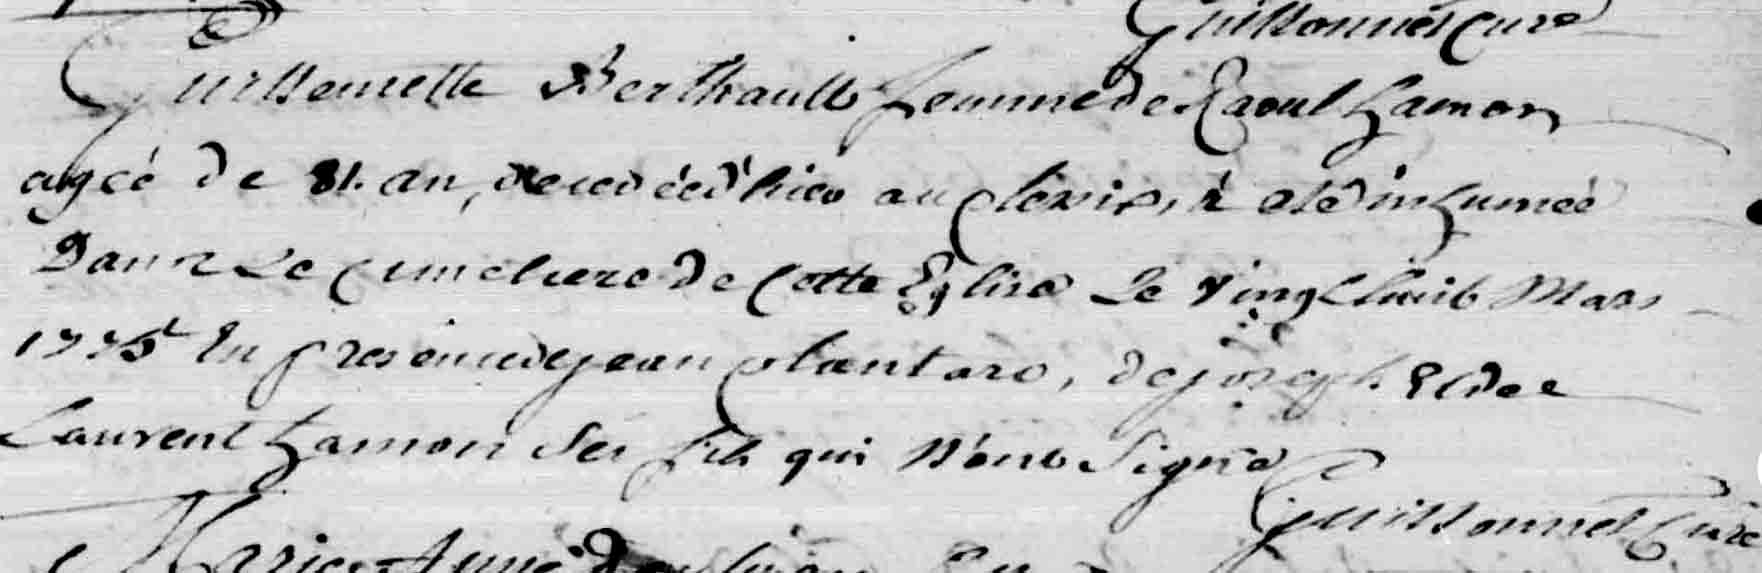 Guillonnet Curé
Guillemette Berthault femme de Raoul hamon
agée de 81. an, decedéé d'hier au plexix, à eté inhumeé
Dans Le Cimetiere de Cette Eglise Le vingt huit Mars
1775 En presence de jean plantaro, de joseph Et de
Laurent hamon ses fils qui N'ont Signé
Guillonnet Curé
Marie Anne